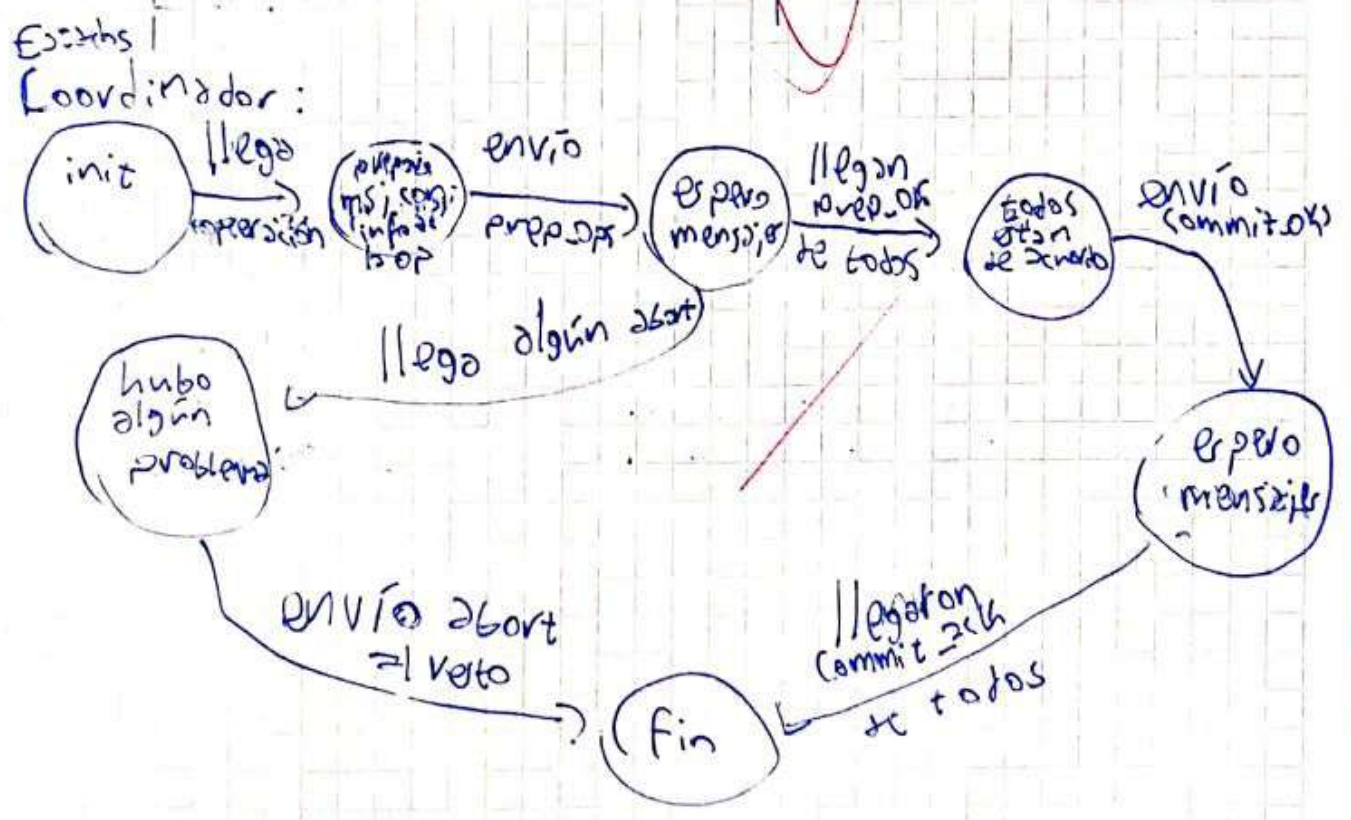 Estados
Coordinador:
init
llega
operación
msj, con
info de
envío
prep_ops
espero
mensajes
llegan
prep_ok
de todos
todos
están
de acuerdo
envío
commit_ok
llega algún abort
hubo
algún
problema
espero
mensajes
envío abort
al resto
llegaron
commit_ack
de todos
fin